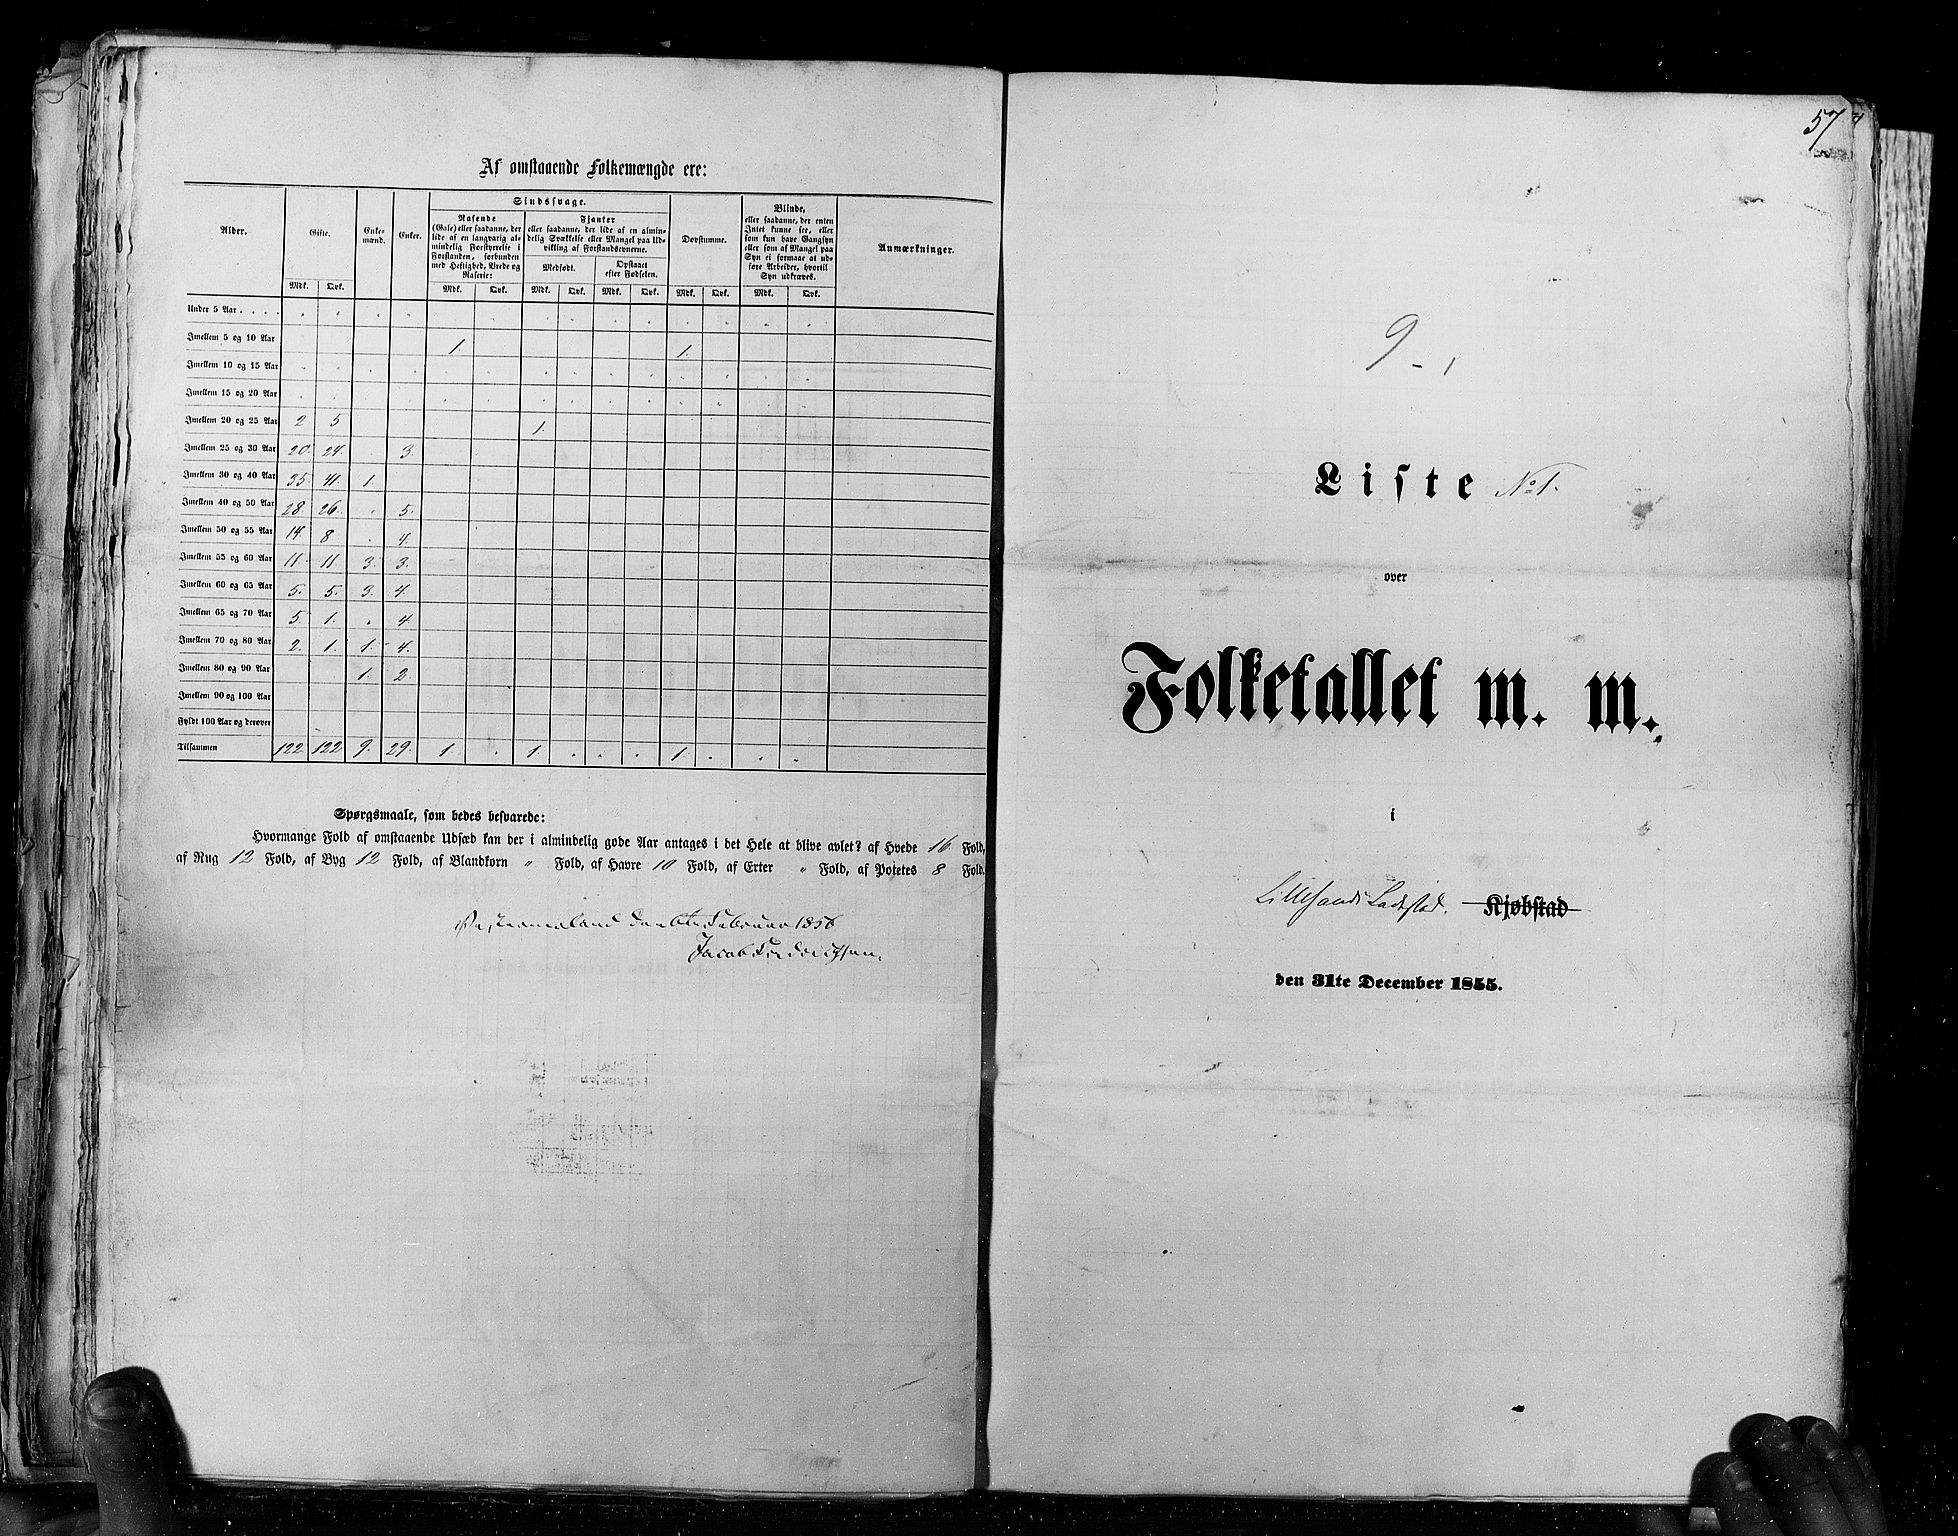 Af omstaaende Folkemængde ere:
Alder. Gifte. Enkemænd. Enker. Sindssvage. Døvstumme. Blinde, Anmærkninger.
Rasende (Gale) eller saadanne, der lide af en langvarig almindelig Forstyrrelse i Forstanden, forbunden med Heftighed, Vrede og Raserie:
Fjanter eller saadanne, der lide af en almindelig Svækkelse eller Mangel paa Udvikling af Forstandsevnerne.
Medfødt. Opstaaet efter Fødselen.
eller saadanne, der enten Intet kunne see, eller som kun have Gangsyn eller som af Mangel paa Syn ei formaae at udføre Arbeider, hvortil Syn udkræves.
Mdk. Qvk. Mdk. Qvk. Mdk. Qvk. Mdk. Qvk. Mdk. Qvk. Mdk. Qvk.
Under 5 Aar . . . .
Imellem 5 og 10 Aar 1 1.
Imellem 10 og 15 Aar
Imellem 15 og 20 Aar
Imellem 20 og 25 Aar 2 5 1.
Imellem 25 og 30 Aar 20. 24. 3.
Imellem 30 og 40 Aar 35 41. 1.
Imellem 40 og 50 Aar 28. 26. 5.
Imellem 50 og 55 Aar 14 8 4.
Imellem 55 og 60 Aar 11. 11 3. 3.
Imellem 60 og 65 Aar 5. 5. 3. 4.
Imellem 65 og 70 Aar 5 1. 4
Imellem 70 og 80 Aar 2. 1. 1. 4.
Imellem 80 og 90 Aar 1. 2
Imellem 90 og 100 Aar
Fyldt 100 Aar og derover
Tilsammen 122 122 9. 29. 1. 1. 1.
Spørgsmaale, som bedes besvarede:
Hvormange Fold af omstaaende Udsæd kan der i almindelig gode Aar antages i det Hele at blive avlet? af Hvede 16 Fold,
af Rug 12 Fold, af Byg 12 Fold, af Blandkorn " Fold, af Havre 10 Fold, af Erter " Fold, af Potetes 8 Fold.
den 6te Februar 1856
Jacob
57
9-1
Liste No 1.
over
Folketallet m. m.
i
Lillesands Ladestad. Kjøbstad
den 31te December 1855.